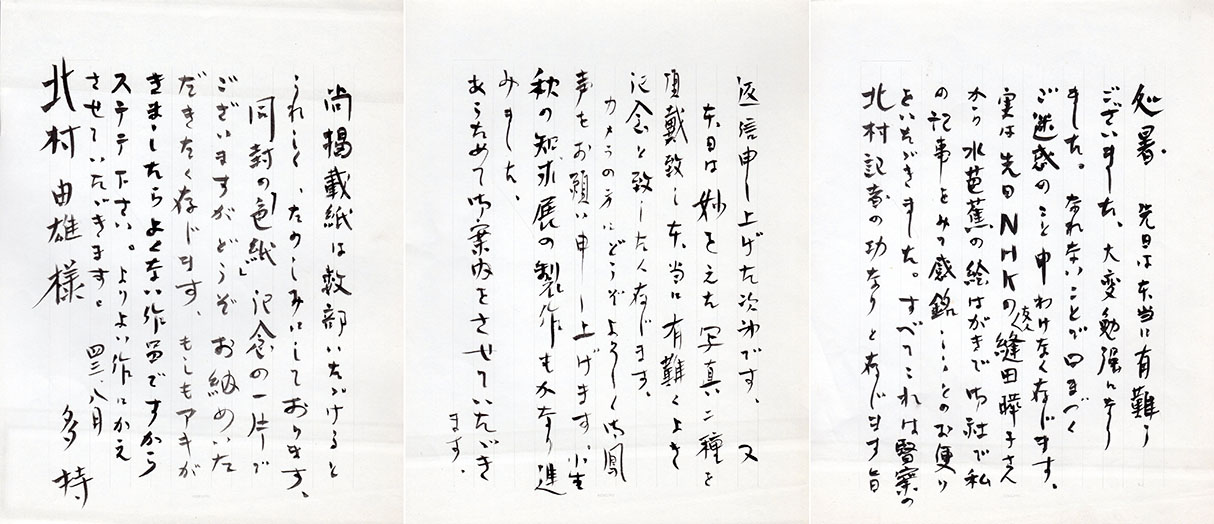 処暑。先日は本当に有難う
ございました。大変勉強になり
ました。なれないことで口まづく
ご迷惑のこと申わけなく存じます。
実は先日NHKの縫田曄子さん
から水芭蕉の絵はがきで御社で私
の記事をみて感銘…とのお便り
をいただきました。すべてこれは賢察の
北村記者の功なりと存じます旨
返信申し上げた次第です。又
本日は妙をえた写真二種を
頂戴致し本当に有難くよき
記念と致したく存じます。
カメラの方にどうぞよろしく御鳳
声をお願い申し上げます。小生
秋の知求展の製作もかなり進
みました。
あらためて御案内をさせていただき
ます。
尚掲載紙は数部いただけると
うれしく、たのしみにしております。
同封の「色紙」記念の一片で
ございますがどうぞお納めいた
だきたく存じます、もしもアキが
きましたらよくない作品ですから
ステテ下さい。よりよい作にかえ
させていただきます。
四三、八月
多持
北村由雄様